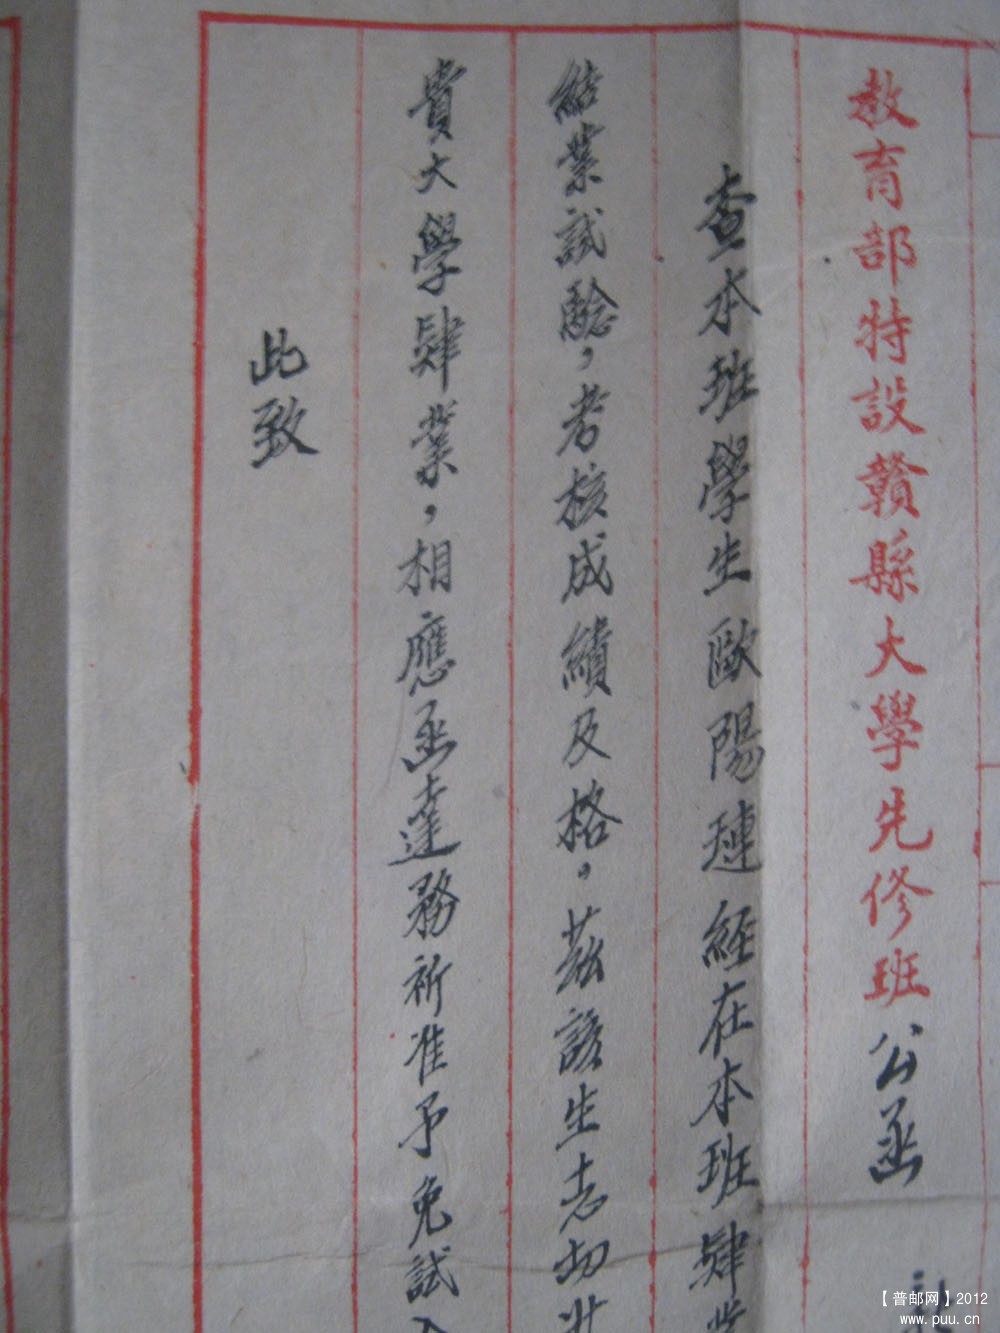 教育部特設贛縣大學先修班公函
查本班學生歐陽璉經在本班肄業
結業試驗,考核成績及格。茲該生志切
貴大學肄業,相應函達務祈准予免試入
此致
【普邮网】2012
www.puu.cn